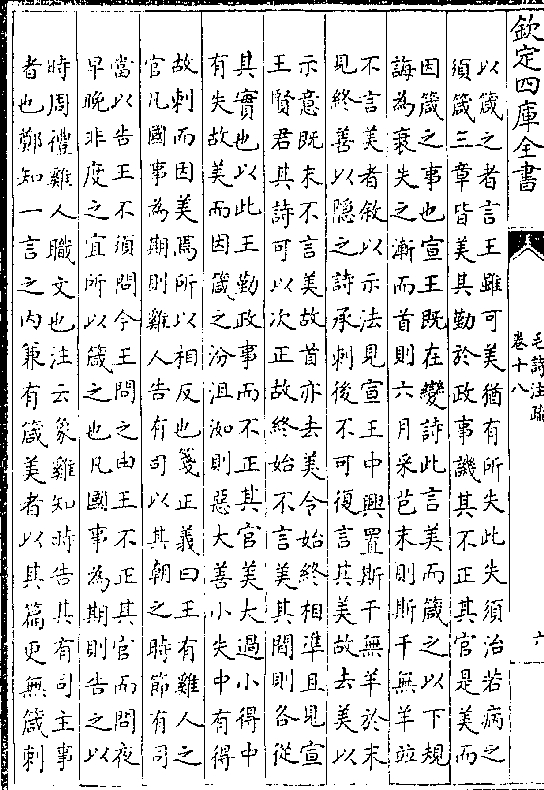 欽定四庫全書
毛詩注疏
卷十八
六
以箴之者言王雖可美猶有所失此失須治若病之
須箴三章皆美其勤於政事譏其不正其官是美而
因箴之事也宣王既在變詩此言美而箴之以下規
誨為衰失之漸而首則六月采芑末則斯干無羊竝
不言美者敘以示法見宣王中興置斯干無羊於末
見終善以隐之詩承刺後不可復言其美故去美以
示意既末不言美故首亦去美令始終相準且見宣
王賢君其詩可以次正故終始不言美其間則各從
其實也以此王勤政事而不正其官美大過小得中
有失故美而因箴之汾沮洳則惡大善小失中有得
故刺而因美焉所以相反也箋正義曰王有雞人之
官凡國事為期則雞人告有司以其朝之時節有司
當以告王不須問今王問之由王不正其官而問夜
早晚非度之宜所以箴之也凡國事為期則告之以
時周禮雞人職文也注云象雞知時告其有司主事
者也鄭知一言之内兼有箴美者以其篇更無箴刺